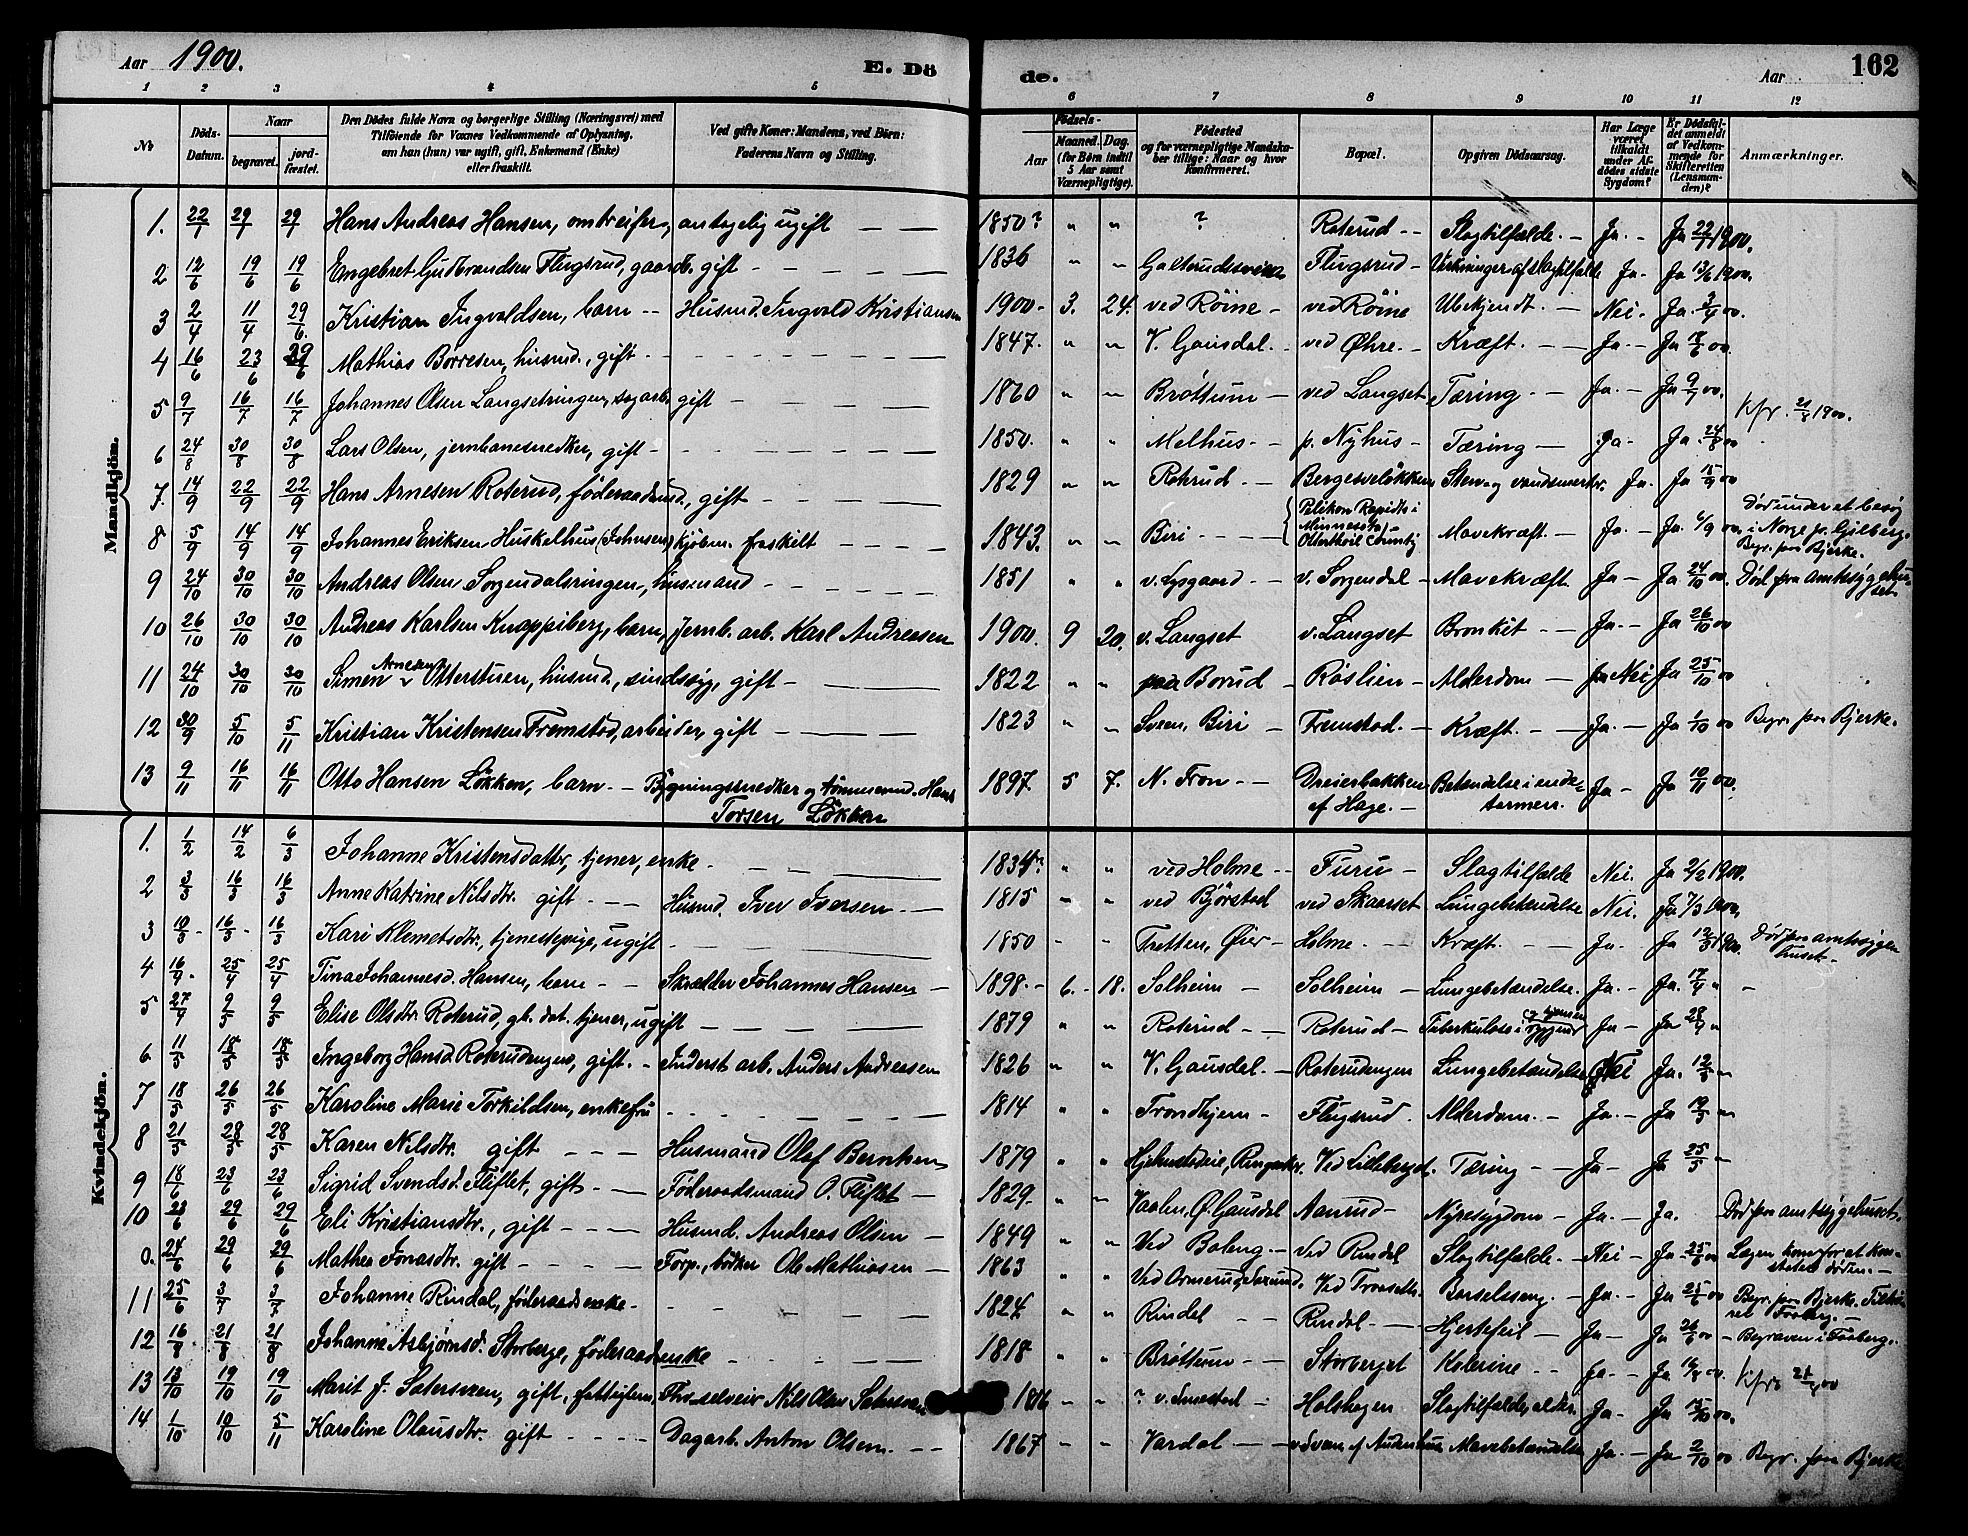 Aar 1900. E. Dö de. Aar 162
1 2 3 4 5 6 7 8 9 10 11 12
No
Döds-Datum.
Naar
begravet.
jord-fæstet.
Den Dödes fulde Navn og borgerlige Stilling (Næringsvei) med
Tilföiende for Voxnes Vedkommende af Oplysning,
om han (hun) var ugift, gift, Enkemand (Enke)
eller fraskilt.
Ved gifte Koner: Mandens, ved Börn:
Faderens Navn og Stilling.
Födsels-
Aar
Maaned. Dag.
(for Börn indtil
5 Aar samt
Værnepligtige).
Födested
og for værnepligtige Mandska-
ber tillige: Naar og hvor
konfirmeret.
Bopæl.
Opgiven Dödsaarsag.
Har Læge
været
tilkaldt
under Af-
dödes sidste
Sygdom?
Er Dödsfal-
det anmeldt
af Vedkom-
mende for
Skifteretten
(Lensman-
den)?
Anmærkninger.
Mandkjön.
1. 22/1 29/1 29/1 Hans Andreas Hansen, omstreifer, antagelig ugift 1850? " " ? Roterud Slagtilfælde. Ja. Ja 22/1 1900.
2 12/6 19/6 19/6 Engebret Gudbrandsen Flugsrud, gaardb. gift 1836 " " Galtrudsveen Flugsrud Virkninger af slagtilfælde Ja. Ja 13/6 1900.
3 2/4 11/4 29/6 Kristian Ingvaldsen, barn Husmd. Ingvald Kristiansen 1900 3. 24. ved Røine ved Røine Ubekjendt. Nei. Ja. 3/4 00.
4 16/6 23/6 29/6 Mathias Borresen, husmd., gift 1847. " " V. Gausdal. ved Øhre. Kræft. Ja. Ja 18/6 00.
5 9/7 16/7 16/7 Johannes Olsen Langsetringen, dagarb. gift 1860 " " Brøttum ved Langset Tæring Ja. Ja 9/7 00. Kfr. 21/8 1900.
6 24/8 30/8 30/8 Lars Olsen, jernbanesnedker, gift 1850. " " Melhus p. Nyhus Tæring Ja. Ja. 24/8 00
7. 14/9 22/9 22/9 Hans Arnesen Roterud, föderaadsmd, gift 1829 " " Roterud Bergesveløkken Sten og vandsmerter. Ja. Ja 15/9 00
8 5/9 14/9 14/9 Johannes Eriksen Huskelhus (Johnsen) kjöbm. fraskilt 1843. " " Biri Pelikan Rapids i Minnesota Ottertail County Mavekræft. Ja. Ja. 6/9 00. Død under et besøg i Norge p. Gilberg. Begr. paa Bjerke.
9 24/10 30/10 30/10 Andreas Olsen Sorgendalsringen, husmand 1851 " " v. Lysgaard v. Sorgendal Mavekræft. Ja Ja. 24/10 00. Død paa amtssygehuset
10 26/10 30/10 30/10 Andreas Karlsen Knappiberg, barn, Jernb. arb. Karl Andreasen 1900. 9 20. v. Langset v. Langset Bronkit Ja. Ja 26/10 00
11 24/10 30/10 30/10 Simen Arnesen Otterstuen, husmd., sindssyg, gift 1822 " " Borud Röslien Alderdom Nei Ja 25/10 00
12 30/9 5/10 5/11 Kristian Kristensen Fremstad, arbeider, gift 1823 " " Sveen, Biri Fremstad. Kræft. Ja. Ja 1/10 00 Begr. paa Bjerke.
13 9/11 16/11 16/11 Otto Hansen Løkken, barn. Bygningssnedker og tömmermd. Hans Torsen Løkken 1897. 5 7. N. Fron Dreierbakken af Hage. Betændelse i endetarmen. Ja Ja 10/11 00.
Kvindekjön.
1. 1/2 14/2 6/3 Johanne Kristensdatter, tjener, enke 1834? " " ved Holme Furu Slagtilfælde Nei. Ja 2/2 1900.
2 3/3 16/3 16/3 Anne Katrine Nilsdtr. gift Husmd. Iver Iversen 1815 " " ved Bjørstad ved Skaarset Lungebetændelse Nei. Ja 7/3 1900.
3 10/3 16/3 16/3 Kari Klemetsdtr., tjenestepige, ugift 1850 " " Tretten, Øier Holme. Kræft. Ja. Ja 12/3 1900. Død paa amtssygehuset
4 16/4 25/4 25/4 Tina Johannesd. Hansen, barn Skrædder Johannes Hansen 1898. 6. 18. Solheim Solheim Lungebetændelse. Ja. Ja. 17/4 "
5 27/4 9/5 9/5 Elise Olsdtr. Roterud, gb. dat. tjener, ugift 1879 " " Roterud Roterud Tuberkulose i ryggen og hjernen Ja Ja 28/4 "
6 11/5 18/5 18/5 Ingeborg Hansd. Roterudengen, gift. Inderst arb. Anders Andreasen 1826 " " V. Gausdal. Roterudengen Lungebetændelse Nei Ja. 12/5 "
7 18/5 26/5 26/5 Karoline Marie Torkildsen, enkefru 1814 " " Trondhjem Flugsrud Alderdom. Ja. Ja 19/5 "
8 21/5 28/5 28/5 Karen Nilsdtr. gift Husmand Olaf Berntsen 1879 " " Hjelmstadeie, Ringsaker. Ved Lilleberget. Tæring Ja Ja 25/5 "
9 18/6 23/6 23/6 Sigrid Svendsd. Fliflet, gift. Föderaadsmand O. Fliflet 1829. " " Vaalen, Ø. Gausdal Aanrud Nyresygdom Ja. Ja. Død paa amtssygehuset.
10 23/6 29/6 29/6 Eli Kristiansdtr., gift Husmd. Andreas Olsen 1849 " " Ved Baleng. Ved Rindal Slagtilfælde. Nei Ja 25/6 00 Lægen kom for at konstatere døden.
0. 24/6 29/6 29/6 Mathea Jonasdtr. gift Forp., bödker Ole Mathiasen 1863 " " Ved Ormerud, Ved Barselseng. Ja. Ja 25/6 00 Begr. paa Bjerke. Faaberg.
11 25/6 3/7 3/7 Johanne Rindal, föderaadsenke. 1824. " " Rindal Rindal. Hjertefeil Ja. Ja 26/6 00 Begraven i Faaberg.
12 16/8 21/8 21/8 Johanne Asbjørnsd. Storberge, föderaadsenke 1818 " " Brøttum Storberget Kolerine Ja. Ja 16/8 00. Kfr. 21/8 00
13 13/10 19/10 19/10 Marit J. Sætersveen, gift, fattiglem, Nils Olsen Sætersveen 1816 " " ? v. Smestad Holshagen Slagtilfælde, alder. Ja. Ja 15/10 00.
14 1/10 10/10 5/11 Karoline Olausdtr. gift Dagarb. Anton Olsen. 1867 " " Vardal Mavebetændelse Ja Ja 2/10 00 Begr. paa Bjerke